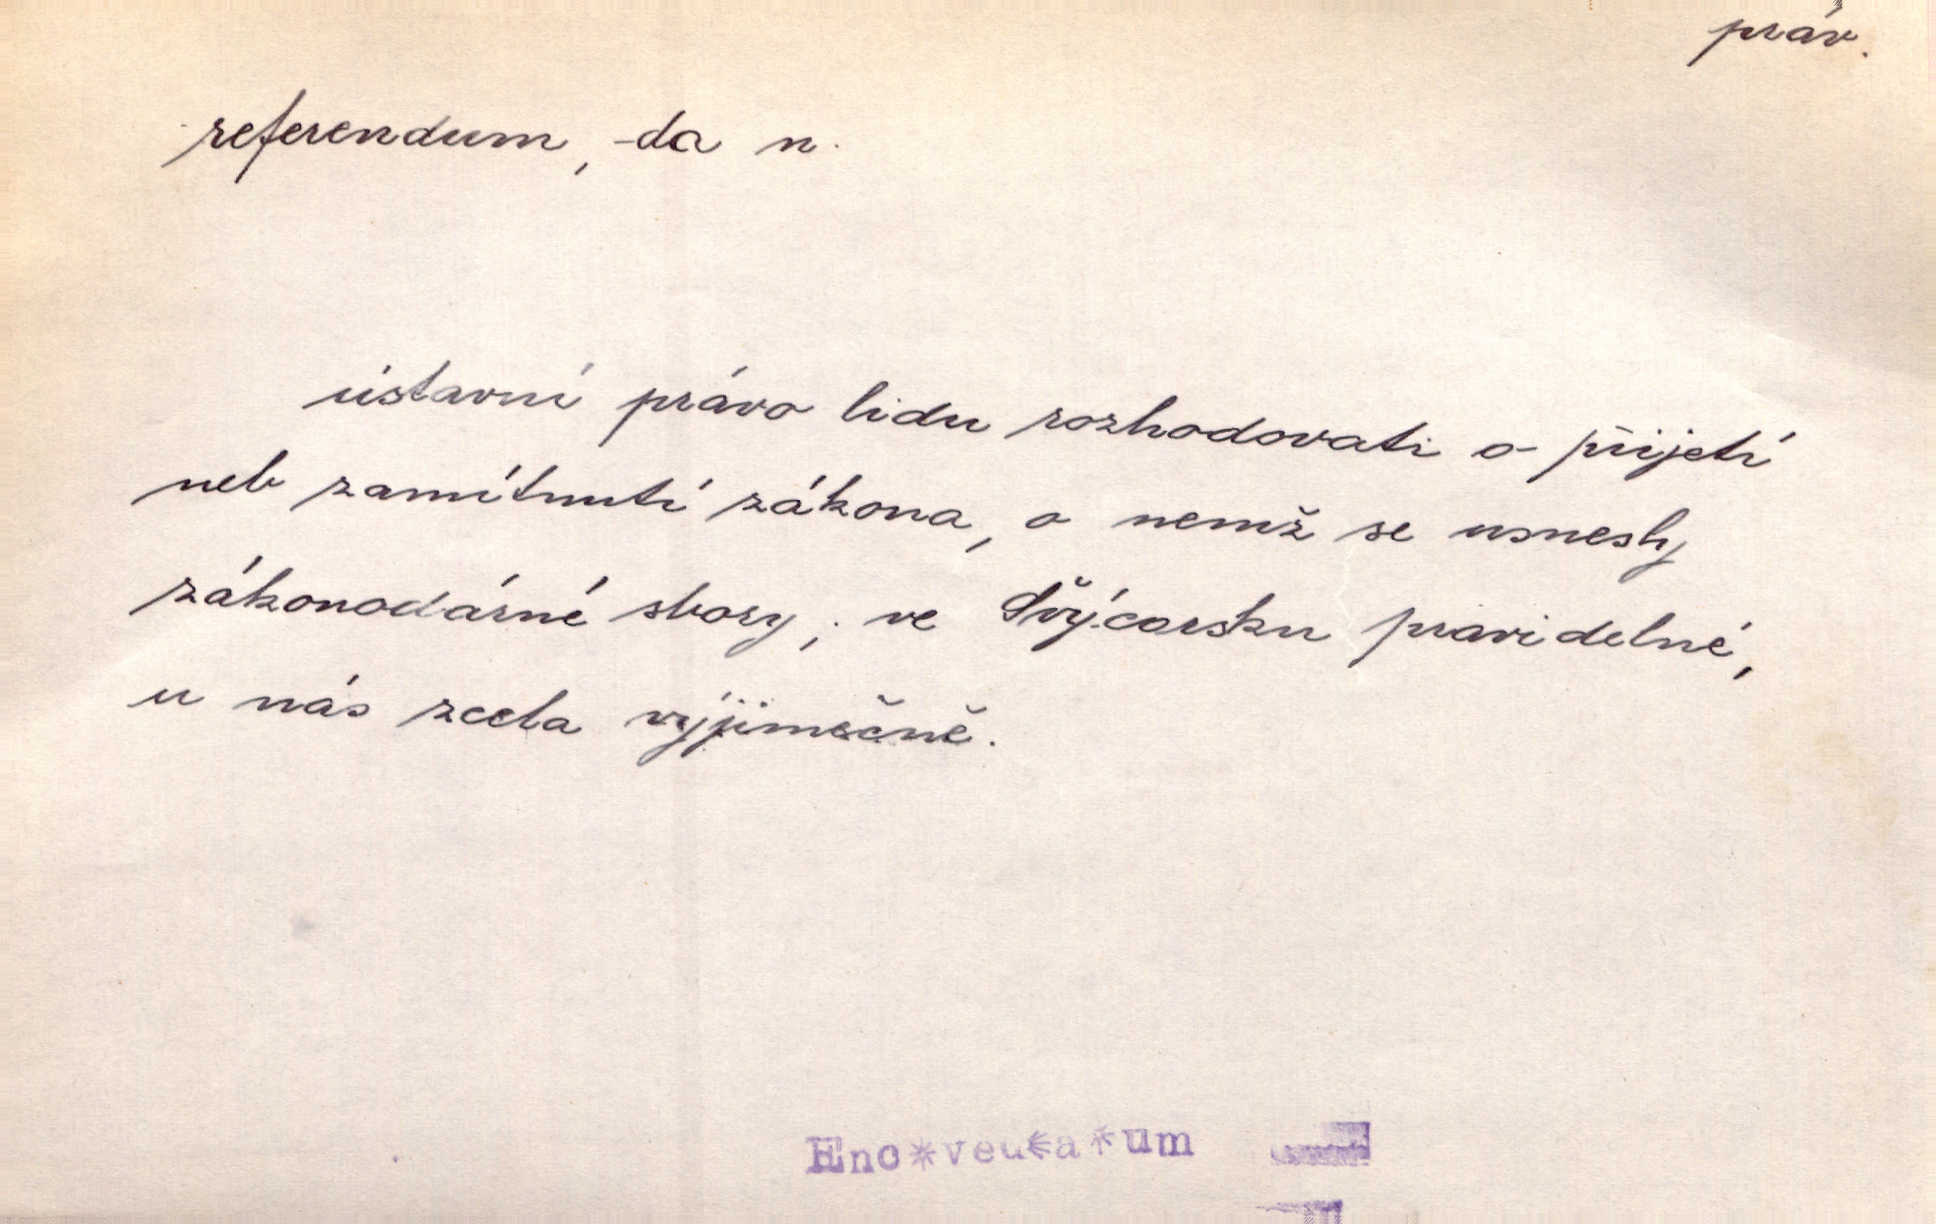 práv.
referendum, -da n.
ústavní právo lidu rozhodovati o přijetí
neb zamítnutí zákona, o nemž se usnesly
zákonodárné sbory; ve Švýcarsku pravidelné,
u nás zcela výjimečně.